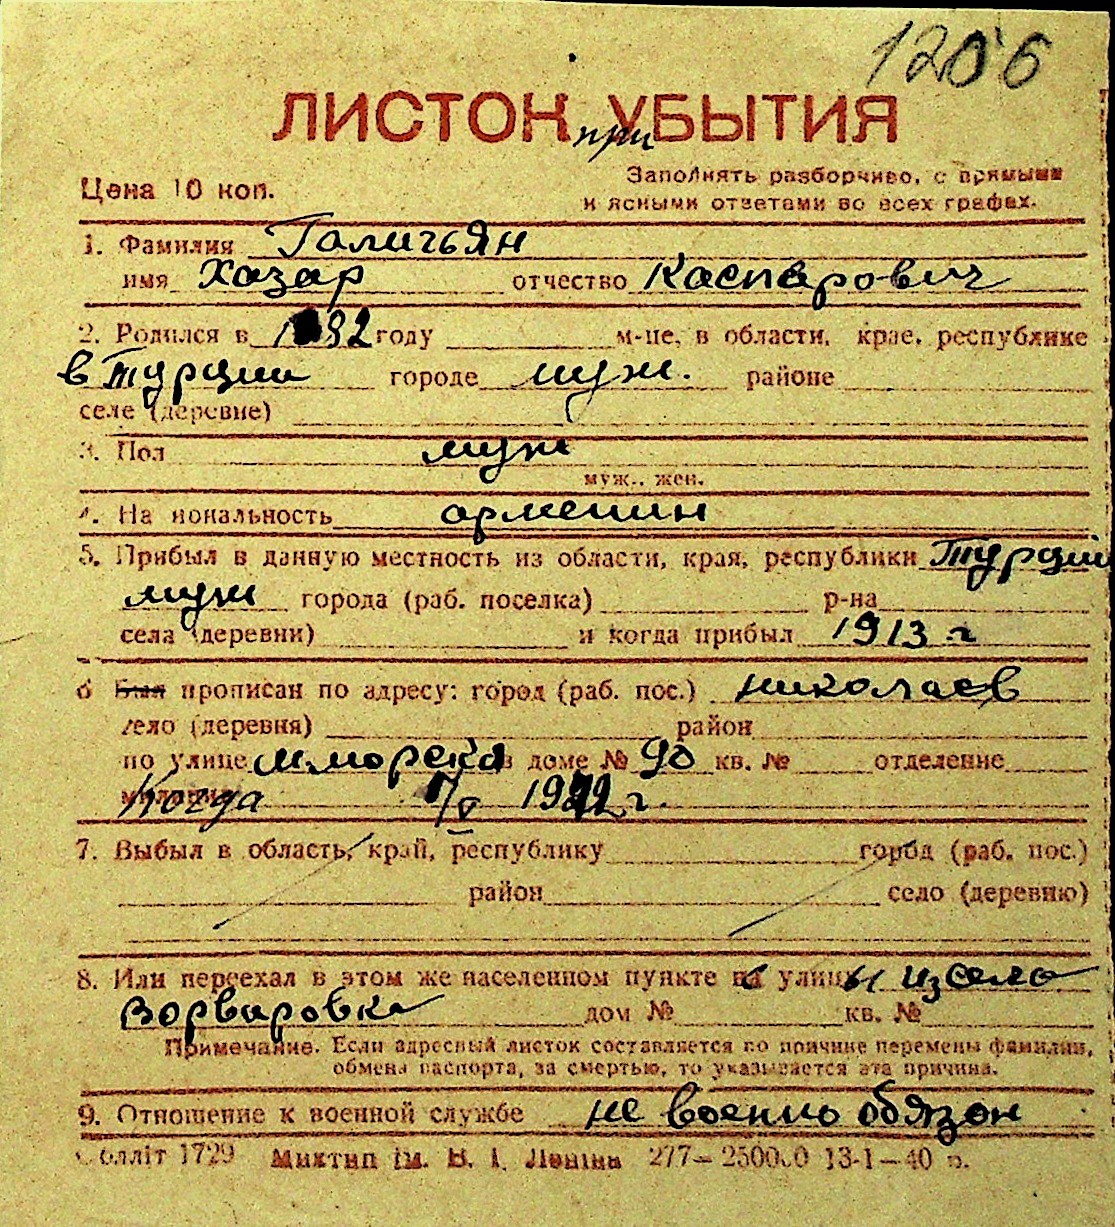 1206
ЛИСТОК при УБЫТИЯ
Цена 10 коп.
Заполнять разборчиво, с прямыми
и ясными ответами во всех графах.
1. Фамилия Галичьян
имя Хазар отчество Каспарович
2. Родился в 1882 году м-це, в области, крае, республике
в Турции городе муж. районе
селе (деревне)
3. Пол муж
муж., жен.
4. На иональность армянин
5. Прибыл в данную местность из области, края, республики Турции
муж города (раб. поселка) р-на
села (деревни) и когда прибыл 1913 г
6 Был прописан по адресу: город (раб. пос.) николаев
село (деревня) район
по улице м. морская в доме № 90 кв. № отделение
Когда 1942 г.
7. Выбыл в область, край, республику город (раб. пос.)
район село (деревню)
8. Или переехал в этом же населенном пункте улицы из село
Ворваровка дом № кв. №
Примечание. Если адресный листок составляется по причине перемены фамилии,
обмена паспорта, за смертью, то указывается эта причина.
9. Отношение к военной службе не военно обязон
Обллiт 1729 Миктип iм. В. I. Ленiна 277— 250000 13-1—40 р.